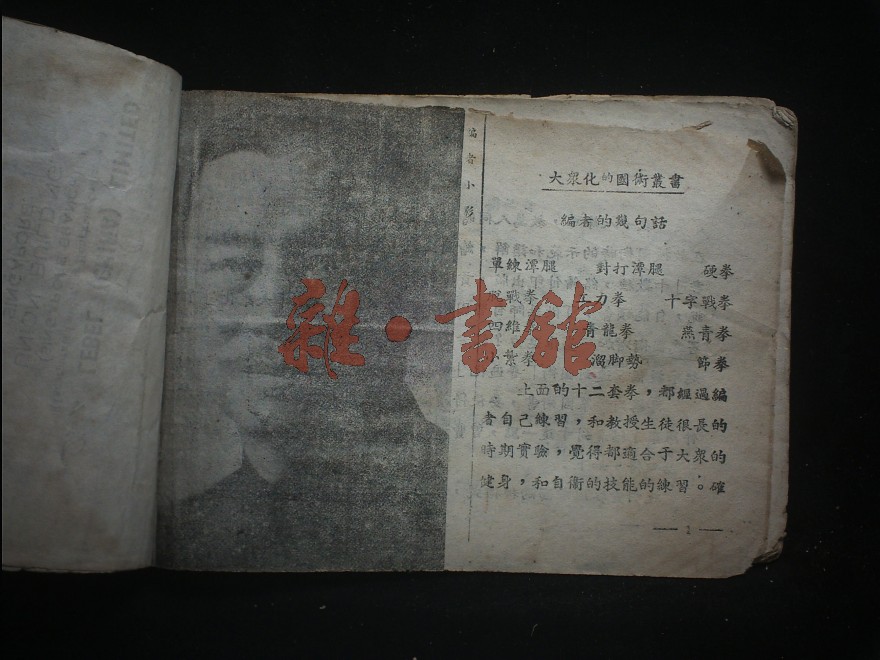 編者小
大眾化的國術叢書
編者的幾句話
單練潭腿 對打潭腿 硬拳
戰拳 力拳 十字戰拳
四維 青龍拳 燕青拳
拳 溜脚勢 節拳
上面的十二套拳，都經過編
者自己練習，和教授生徒很長的
時期實驗，覺得都適合于大眾的
健身，和自衞的技能的練習。確
— 1 —
雜·書舘
LIMITED